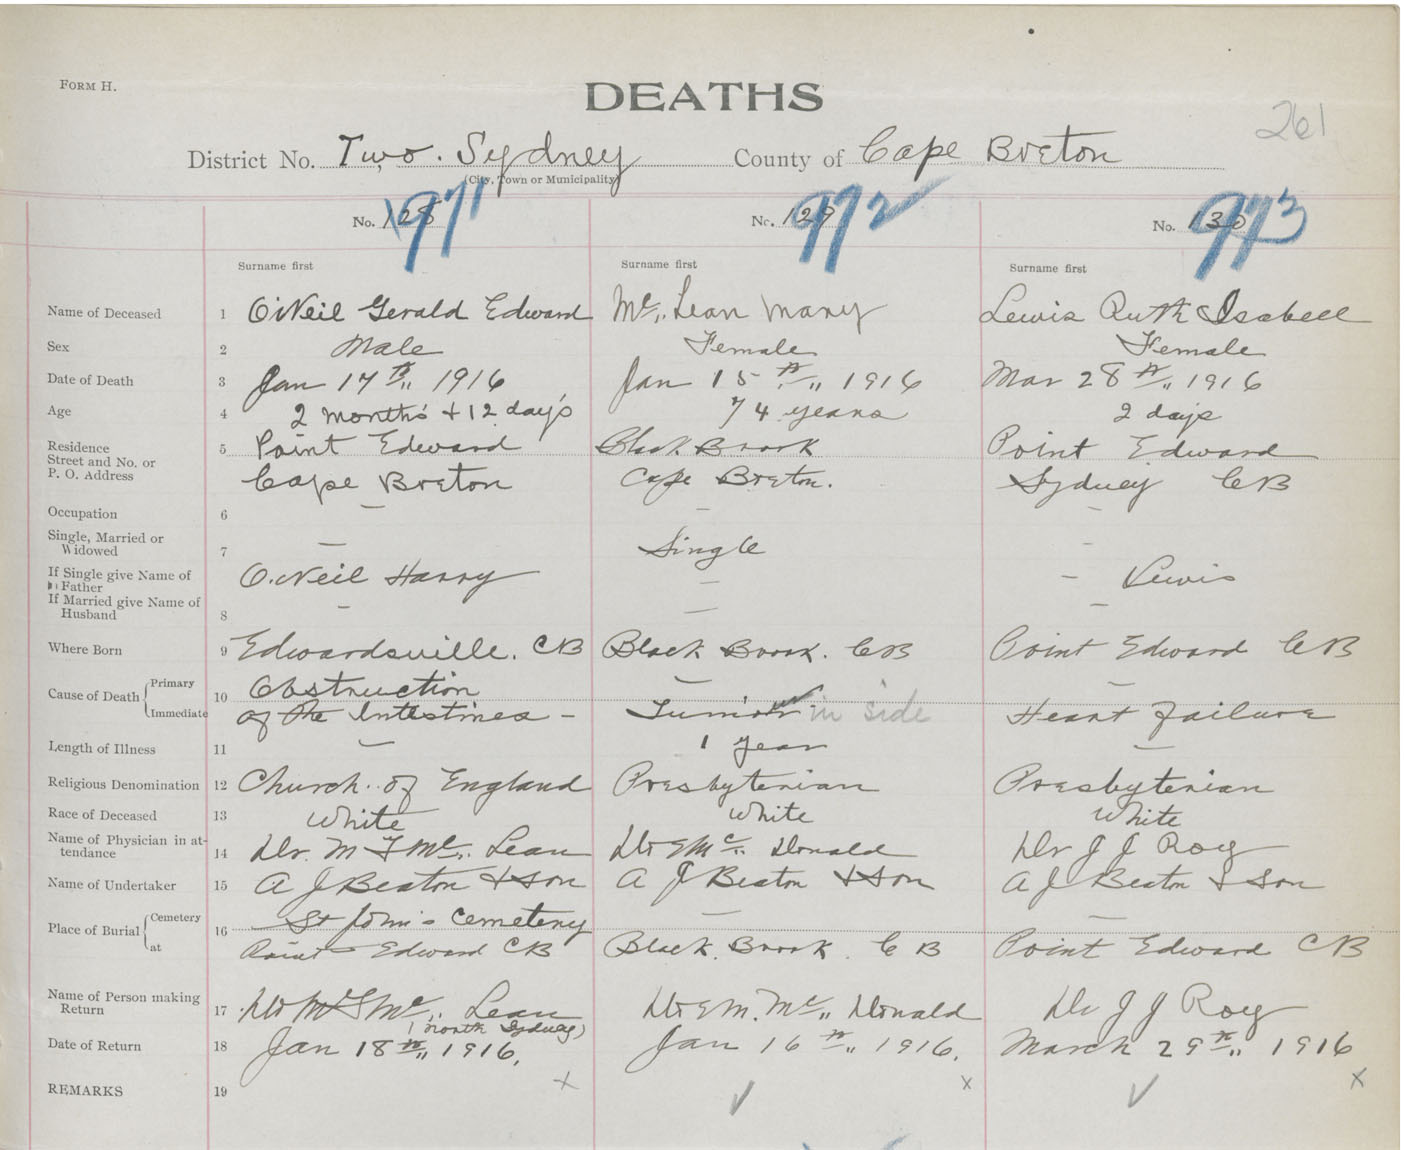 FORM H.
DEATHS
261
District No. Two. Sydney County of Cape Breton
(City, Town or Municipality)
No. 128 971 No. 129 972 No. 130 973
Surname first Surname first Surname first
Name of Deceased 1 O'Neil Gerald Edward Mc Lean Mary Lewis Ruth Isabell
Sex 2 Male Female Female
Date of Death 3 Jan 17th 1916 Jan 15th 1916 Mar 28th 1916
Age 4 2 months + 12 days 74 years 2 days
Residence 5 Point Edward Black Brook Point Edward
Street and No. or
P. O. Address Cape Breton Cape Breton. Sydney CB
Occupation 6 - - -
Single, Married or
Widowed 7 - Single -
If Single give Name of O.Neil Harry - - Lewis
Father
If Married give Name of - - -
Husband 8
Where Born 9 Edwardsville. CB Black Brook. CB Point Edward CB
Cause of Death Primary 10 Obstruction - -
Immediate of the Intestines - Tumor in side Heart Failure
Length of Illness 11 - 1 year -
Religious Denomination 12 Church of England Presbyterian Presbyterian
Race of Deceased 13 White White White
Name of Physician in at-
tendance 14 Dr. M F Mc Lean Dr E Mc Donald Dr J J Roy
Name of Undertaker 15 A J Beaton & Son A J Beaton & Son A J Beaton & Son
Place of Burial Cemetery 16 St John's Cemetery - -
at Point Edward CB Black. Brook. C B Point Edward CB
Name of Person making
Return 17 Dr Mc Lean Dr E M. Mc Donald Dr J J Roy
(North Sydney)
Date of Return 18 Jan 18th 1916. Jan 16th 1916. March 29th 1916
REMARKS 19 x x x